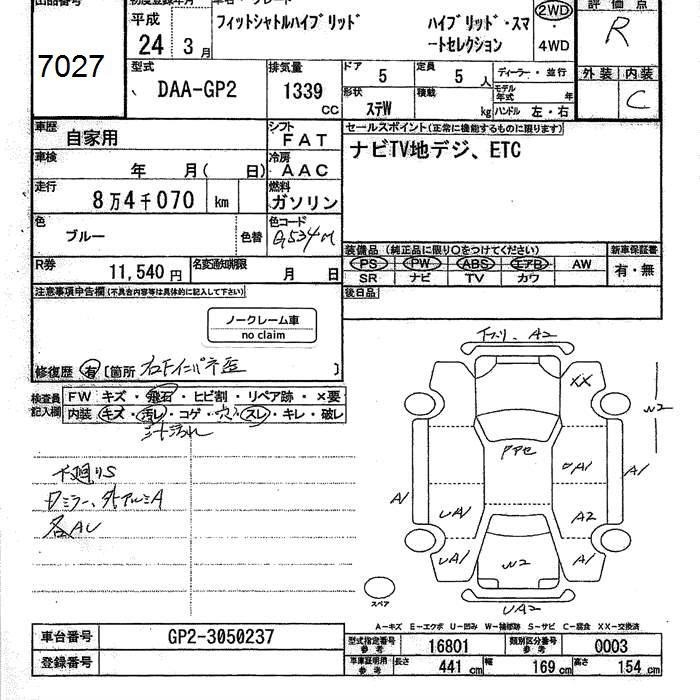 出品番号 初度登録年月 車名・グレード 評価点
平成 フィットシャトルハイブリッド ハイブリッド・スマ 2WD R
24 3月 ートセレクション ・ 4WD
7027
型式 排気量 ドア 5 定員 5人 ディーラー・並行 外装 内装
DAA-GP2 1339 cc 形状 ステW 積載 kg モデル年式 年 C
ハンドル 左・右
車歴 自家用 シフト FAT セールスポイント(正常に機能するものに限ります)
車検 年 月( 日) 冷房 AAC ナビTV地デジ、ETC
走行 8万4千070 km 燃料 ガソリン
色 ブルー 色替 色コード B534M
装備品 (純正品に限り○をつけてください) 新車保証書
R券 11,540円 名変通知期限 月 日 PS PW ABS エアB AW 有・無
SR ナビ TV カワ
注意事項申告欄(不具合内容等は具体的に記入して下さい) 後日品
ノークレーム車
no claim
修復歴 有 [箇所 ]
検査員記入欄 FW キズ・飛石・ヒビ割・リペア跡・×要
内装 キズ・汚レ・コゲ・穴・スレ・キレ・破レ
シート汚れ
下廻りS
ドミラー、外アルミA
各AU
A2
XX
W2
UA1
A1
A1
A2
UA1
UA1
A1
W2
UA2
スペア
A-キズ E-エクボ U-凹み W-補修跡 S-サビ C-腐食 XX-交換済
車台番号 GP2-3050237 型式指定番号 参考 16801 類別区分番号 参考 0003
登録番号 車庫証明用 参考 長さ 441cm 幅 169cm 高さ 154cm